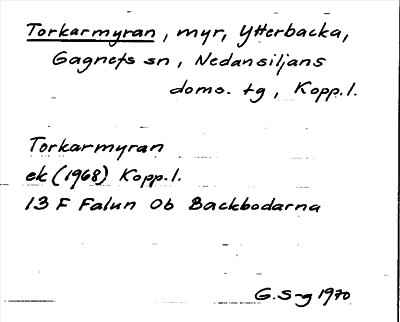 Torkarmyran, myr, Ytterbacka,
Gagnefs sn, Nedansiljans
doms. tg, Kopp.l.
Torkarmyran
ek (1968) Kopp.l.
13 F Falun 0b Backbodarna
G. S-g 1970